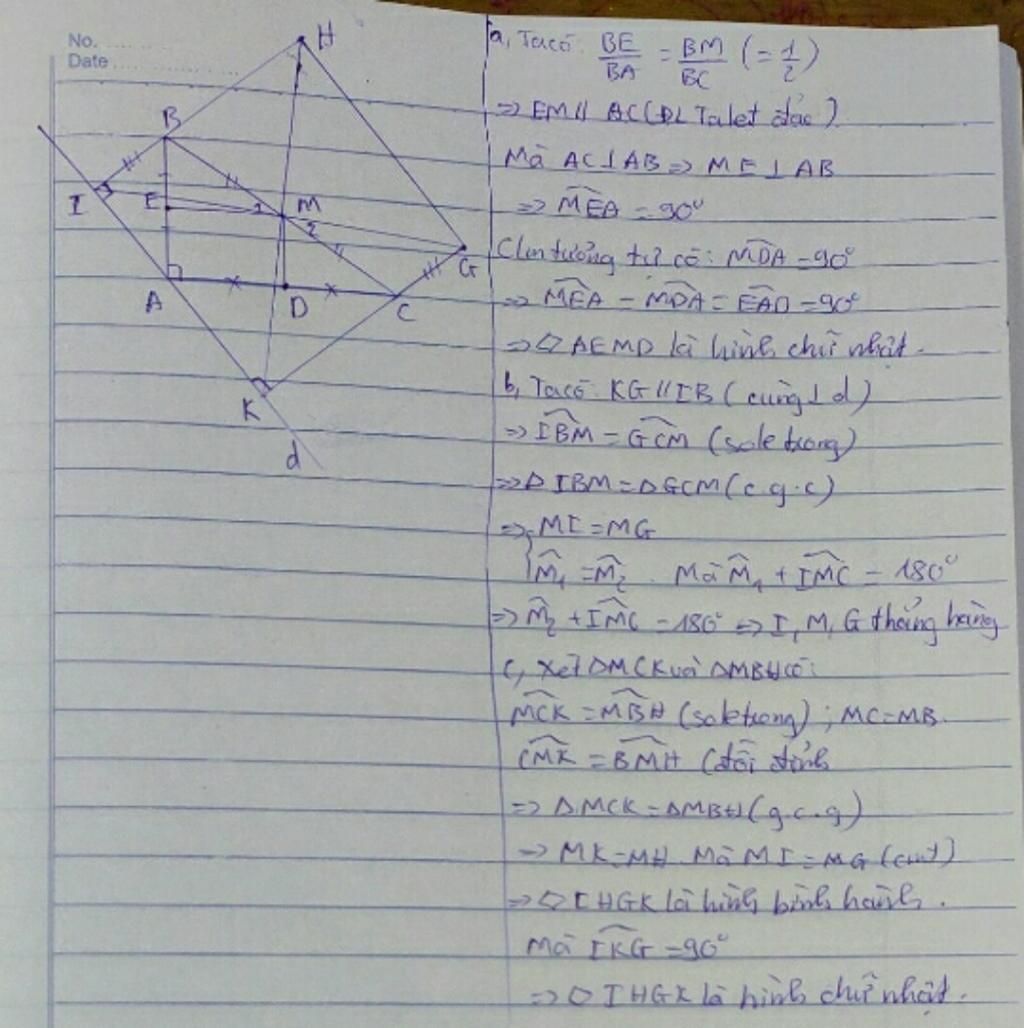 No.
Date
H
B
I
E
1
M
2
G
A
D
C
K
d
a, Ta có: BE/BA = BM/BC (= 1/2)
=> EM // AC (ĐL Talet đảo)
Mà AC ⊥ AB => ME ⊥ AB
=> MEA = 90°
Cm tương tự có: MDA = 90°
=> MEA = MDA = EAD = 90°
=> ◇ AEMD là hình chữ nhật.
b, Ta có: KG // IB (cùng ⊥ d)
=> IBM = GCM (sole trong)
=> Δ IBM = Δ GCM (c.g.c)
=> MI = MG
M̂1 = M̂2. Mà M̂1 + IMC = 180°
=> M̂2 + IMC = 180° => I, M, G thẳng hàng
c, Xét ΔMCK và ΔMBH có:
MCK = MBH (sole trong); MC = MB.
CMK = BMH (đối đỉnh
=> ΔMCK = ΔMBH (g.c.g)
=> MK = MH. Mà MI = MG (cmt)
=> ◇ IHGK là hình bình hành.
Mà IKG = 90°
=> ◇ IHGK là hình chữ nhật.